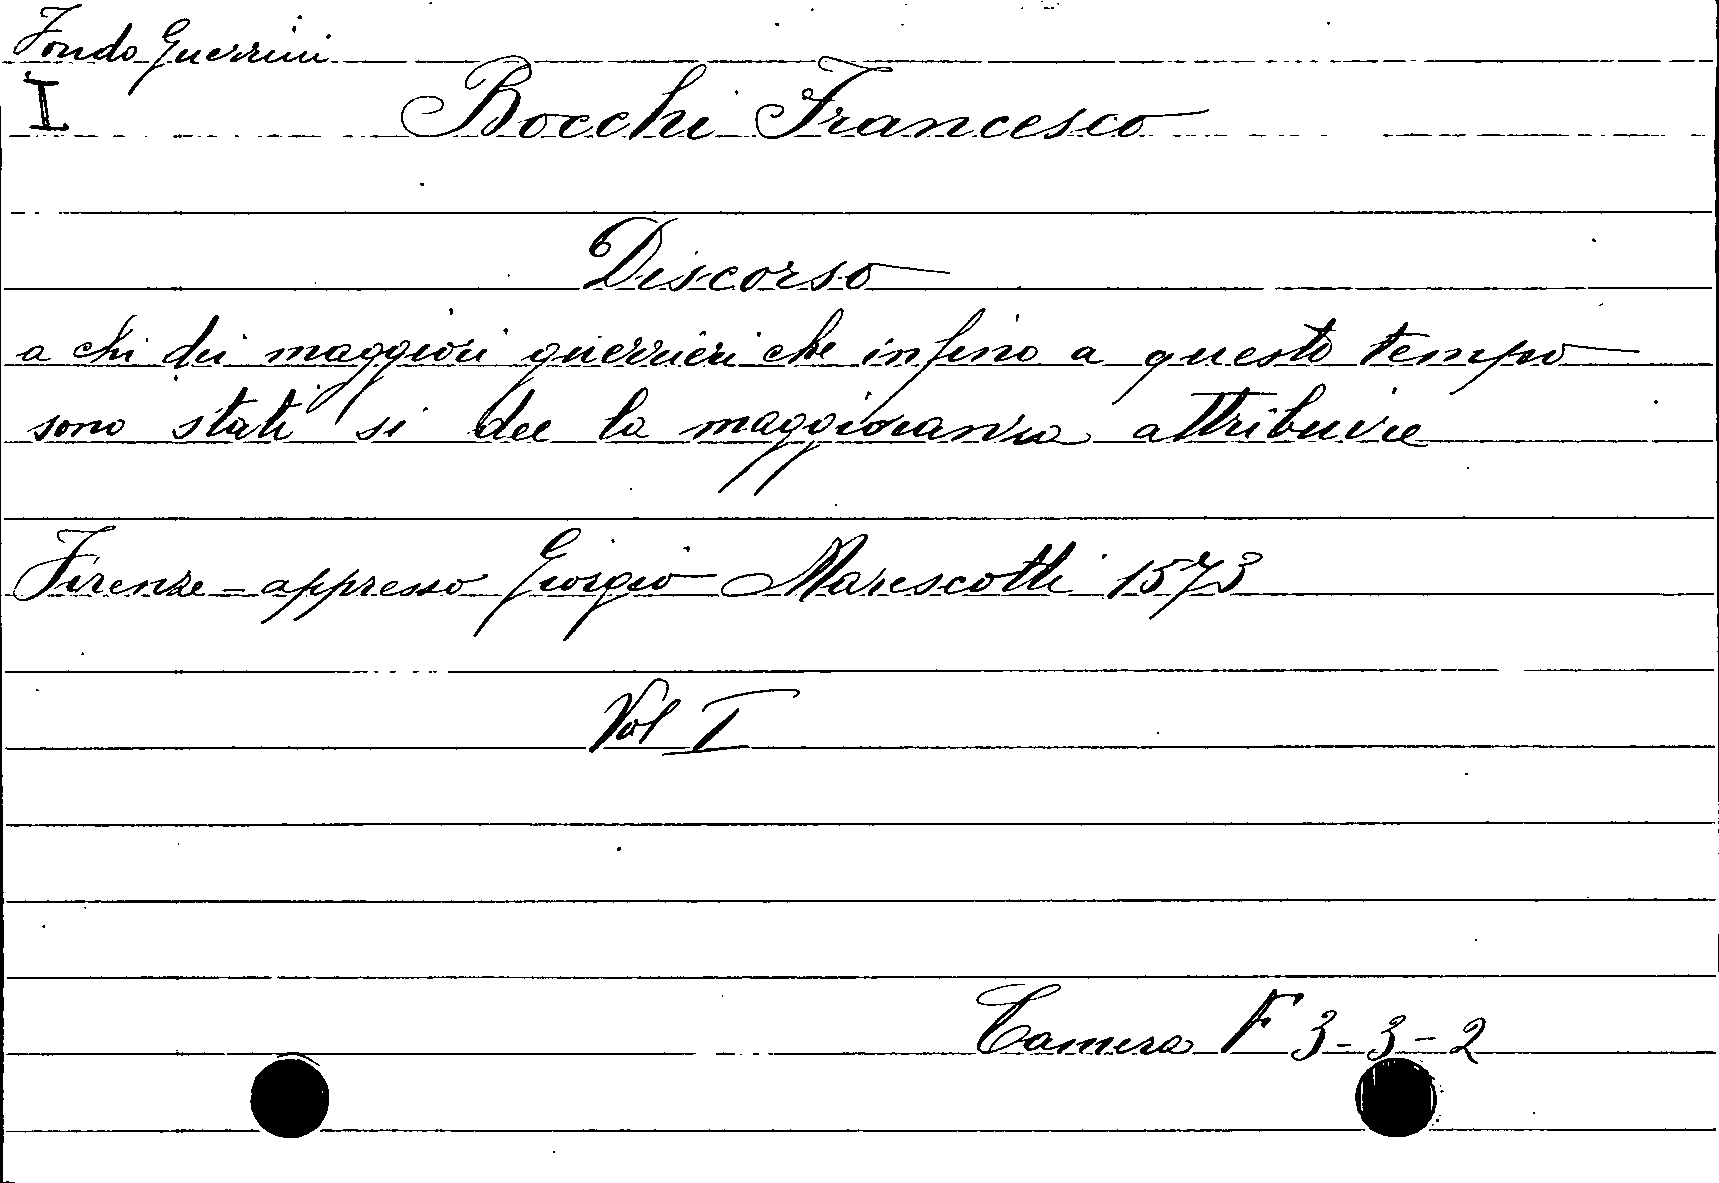 Fondo Guerrini
I
Bocchi Francesco
Discorso
a chi dei maggiori guerrieri che infino a questo tempo
sono stati si dee la maggioranza attribuire
Firenze = appresso Giorgio Marescotti 1573
Vol I
Camera F 3-3-2